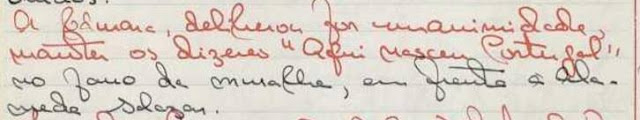 A Câmara, deliberou por unanimidade,
manter os dizeres "Aqui nasceu Portugal",
no pano da muralha, em frente à Ala-
meda Salazar.